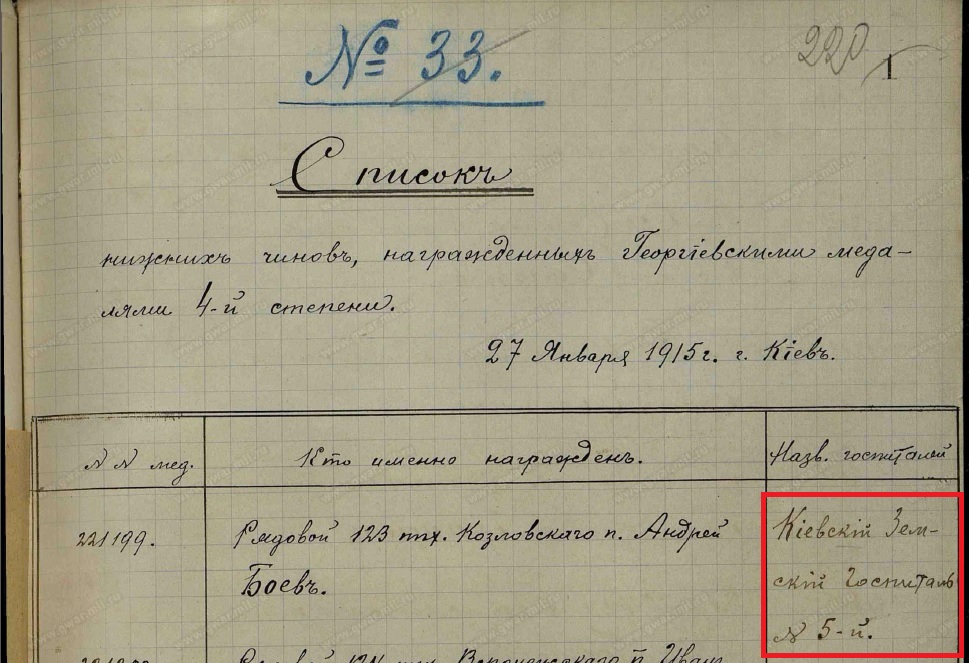 № 33.
220
1
Списокъ
нижнихъ чиновъ, награжденныхъ Георгіевскими меда-
лями 4-й степени.
27 Января 1915 г. г. Кіевъ.
N N мед.
Кто именно награжденъ.
Назв. госпиталей
221199.
Рядовой 123 пѣх. Козловскаго п. Андрей
Боевъ.
Кіевскій Зем-
скій Госпиталь
N 5-й.